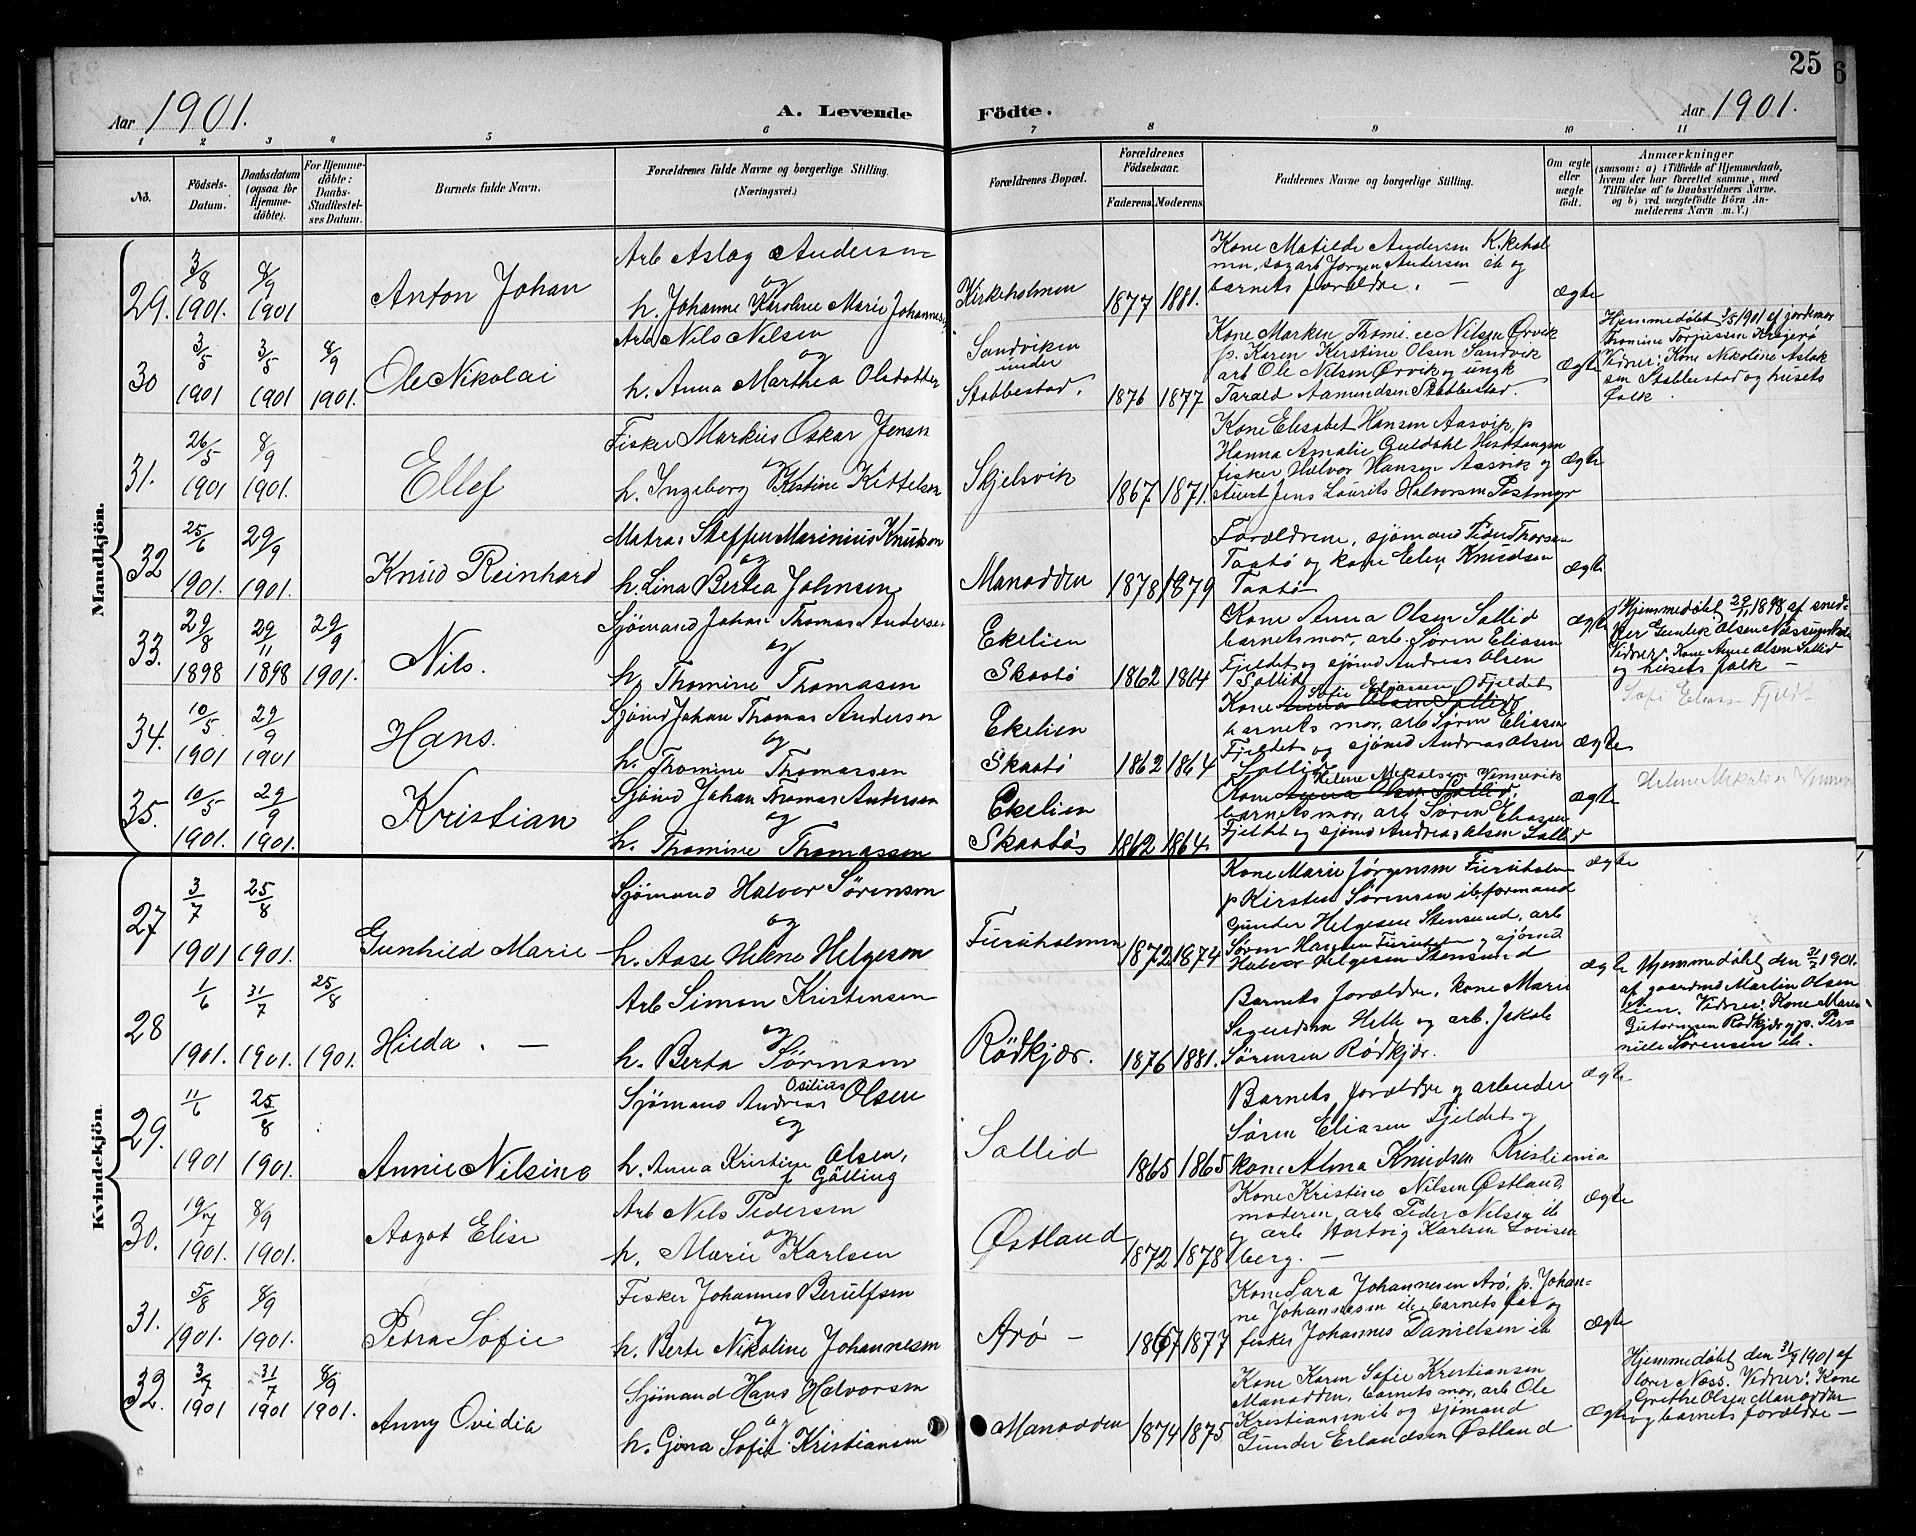 25
Aar 1901.
A. Levende Födte.
Aar 1901.
1 2 3 4 5 6 7 8 9 10 11
No.
Födsels-
Datum.
Daabsdatum
(ogsaa for
Hjemme-
döbte).
For Hjemme-
döbte:
Daabs-
Stadfæstel-
ses Datum.
Barnets fulde Navn.
Forældrenes fulde Navne og borgerlige Stilling.
(Næringsvei.)
Forældrenes Bopæl.
Forældrenes
Födselsaar.
Faderens. Moderens.
Faddernes Navne og borgerlige Stilling.
Om ægte
eller
uægte
födt.
Anmærkninger
(saasom: a) i Tilfælde af Hjemmedaab,
hvem der har forrettet samme, med
Tilföielse af to Daabsvidners Navne.
og b) ved uægtefödte Börn An-
melderens Navn m. V.)
Mandkjön.
29. 3/8 1901. 8/9 1901
Anton Johan
Arb Aslag Andersen
og
h. Johanne Karoline Marie Johannes
Kirkeholmen
1877 1881.
Kone Matilde Andersen Kirkehol
men, Jørgen Andersen ib og
barnets forældre. —
ægte
30 3/5 1901 3/5 1901 8/9 1901.
Ole Nikolai
Arb Nils Nilsen
og
h. Anna Marthea Olsdatter
Sandviken
under
Stabbestad.
1876 1877
Kone Marken Nilsen Ørvik
p. Karen Kerstine Olsen Sandvik
arb Ole Nilsen Ørvik og ungk
Tarald Aamundsen Stabbestad.
ægte
Hjemmedøbt 3/5 1901 af jordemor
Thomine Torjusen Kragerø
Vidner: Kone Nikoline Aslak
sen Stabbestad og husets
folk.
31. 26/5 1901 8/9 1901.
Ellef
Fisker Markus Oskar Jensen
og
h. Ingeborg Kirstine Kittelsen
Skjelsvik
1867 1871.
Kone Elisabet Hansen Aasvik, p
Hanna Amalie Guldahl
fisker Halvor Hansen Aasvik og
stuert Jens Laurits Halvorsen Postmyr
ægte
32 25/6 1901. 29/9 1901.
Knud Reinhard
Matros Steffen Marinius Knudsen
og
h. Lina Bertea Johnsen
Manodden
1878 1879
Forældrene, sjømand Peder Thorsen
Taatø og kone Elen Knudsen
Taatø
ægte
33. 29/8 1898 29/11 1898 29/9 1901.
Nils.
Sjømand Johan Thomas Anderse
og
h. Thomine Thomasen
Ekelien
Skaatø
1862 1864
Kone Anna Olsen Sallid
barnets mor, arb. Søren Eliasen
Fjeldet og sjømd Andreas Olsen
Sallid
ægte
Hjemmedøbt 29/11 1898 af sned-
ker Gunlek Olsen
Vidner: Kone Anne Olsen Sallid
og husets folk —
34. 10/5 1901 29/9 1901
Hans.
Sjømd Johan Thomas Andersen
og
h. Thomine Thomassen
Ekelien
Skaatø
1862 1864
Sofie Eliassen Fjeldet
Kone Anna Olsen Sallid
barnets mor, arb Søren Eliasen
Fjeldet og sjømd Andreas Olsen
Sallid
ægte
Sofi Eliassen Fjeldt
35. 10/5 1901. 29/9 1901.
Kristian
Sjømd Johan Thomas Andersen
og
h. Thomine Thomassen
Ekelien
Skaatø
1862 1864
Helene Mikalsen Vinnevik
Kone Anna Olsen Sallid,
barnets mor, arb Søren Eliasen
Fjeldet og sjømd Andreas Olsen Sallid
ægte
Helene Mikalsen
Kvindekjön.
27 3/7 1901 25/8 1901.
Gunhild Marie —
Sjømand Halvor Sørensen
og
h. Aase Helene Helgesen
Furuholmen
1872 1874
Kone Marie Jørgensen Furuholm
p Kirsten Sørensen ib, formand
Gunder Helgesen Stensund, arb
Søren og sjømd
Halvor Helgesen Stensund
ægte
28 1/6 1901. 31/7 1901. 25/8 1901.
Hilda. —
Arb Simon Kristensen
og
h. Berta Sørensen
Rödkjær.
1876 1881.
Barnets forældre, kone Marie
Sigurdsen Helle og arb. Jakob
Sørensen Rödkjær.
ægte
Hjemmedøbt den 31/7 1901.
af gaardmd Martin Olsen
Lien. Vidner: Kone Maren
Rödkjær og p. Per-
nille Sørensen ib.
29. 11/6 1901 25/8 1901.
Annie Nilsine
Sjømand Andreas Osilius Olsen
og
h. Anna Kristine Olsen,
f Gölling
Sallid
1865 1865
Barnets forældre og arbeider
Søren Eliasen Fjeldet og
kone Alma Knudsen Kristiania
ægte
30. 19/7 1901. 8/9 1901.
Aagot Elise
Arb Nils Pedersen
og
h. Marie Karlsen
Østland
1872 1878
Kone Kristine Nilsen Østland,
moderen, arb Peder Nilsen ib
og arb Hartvig Karlsen Lovisen
berg. —
ægte
31. 5/8 1901. 8/9 1901.
Petra Sofie
Fisker Johannes Berulfsen
og
h. Berte Nikoline Johannesen
Arø —
1867 1877
Kone Sara Johannesen Arø, p. Johan-
ne Johannesen ib, barnets far og
fisker Johannes Danielsen ib
ægte
32. 3/7 1901 31/7 1901 8/9 1901.
Anny Ovidia
Sjømand Hans Halvorsen
og
h. Gina Sofie Kristiansen
Manodden
1874 1875
Kone Karen Sofie Kristiansen
Manodden, barnets mor, arb Ole
Kristiansen ib og sjømand
Gunder Erlandsen Østland
ægte
Hjemmedøbt den 31/7 1901 af
lærer Næss. Vidner: Kone
Grethe Olsen Manodden
og barnets forældre —